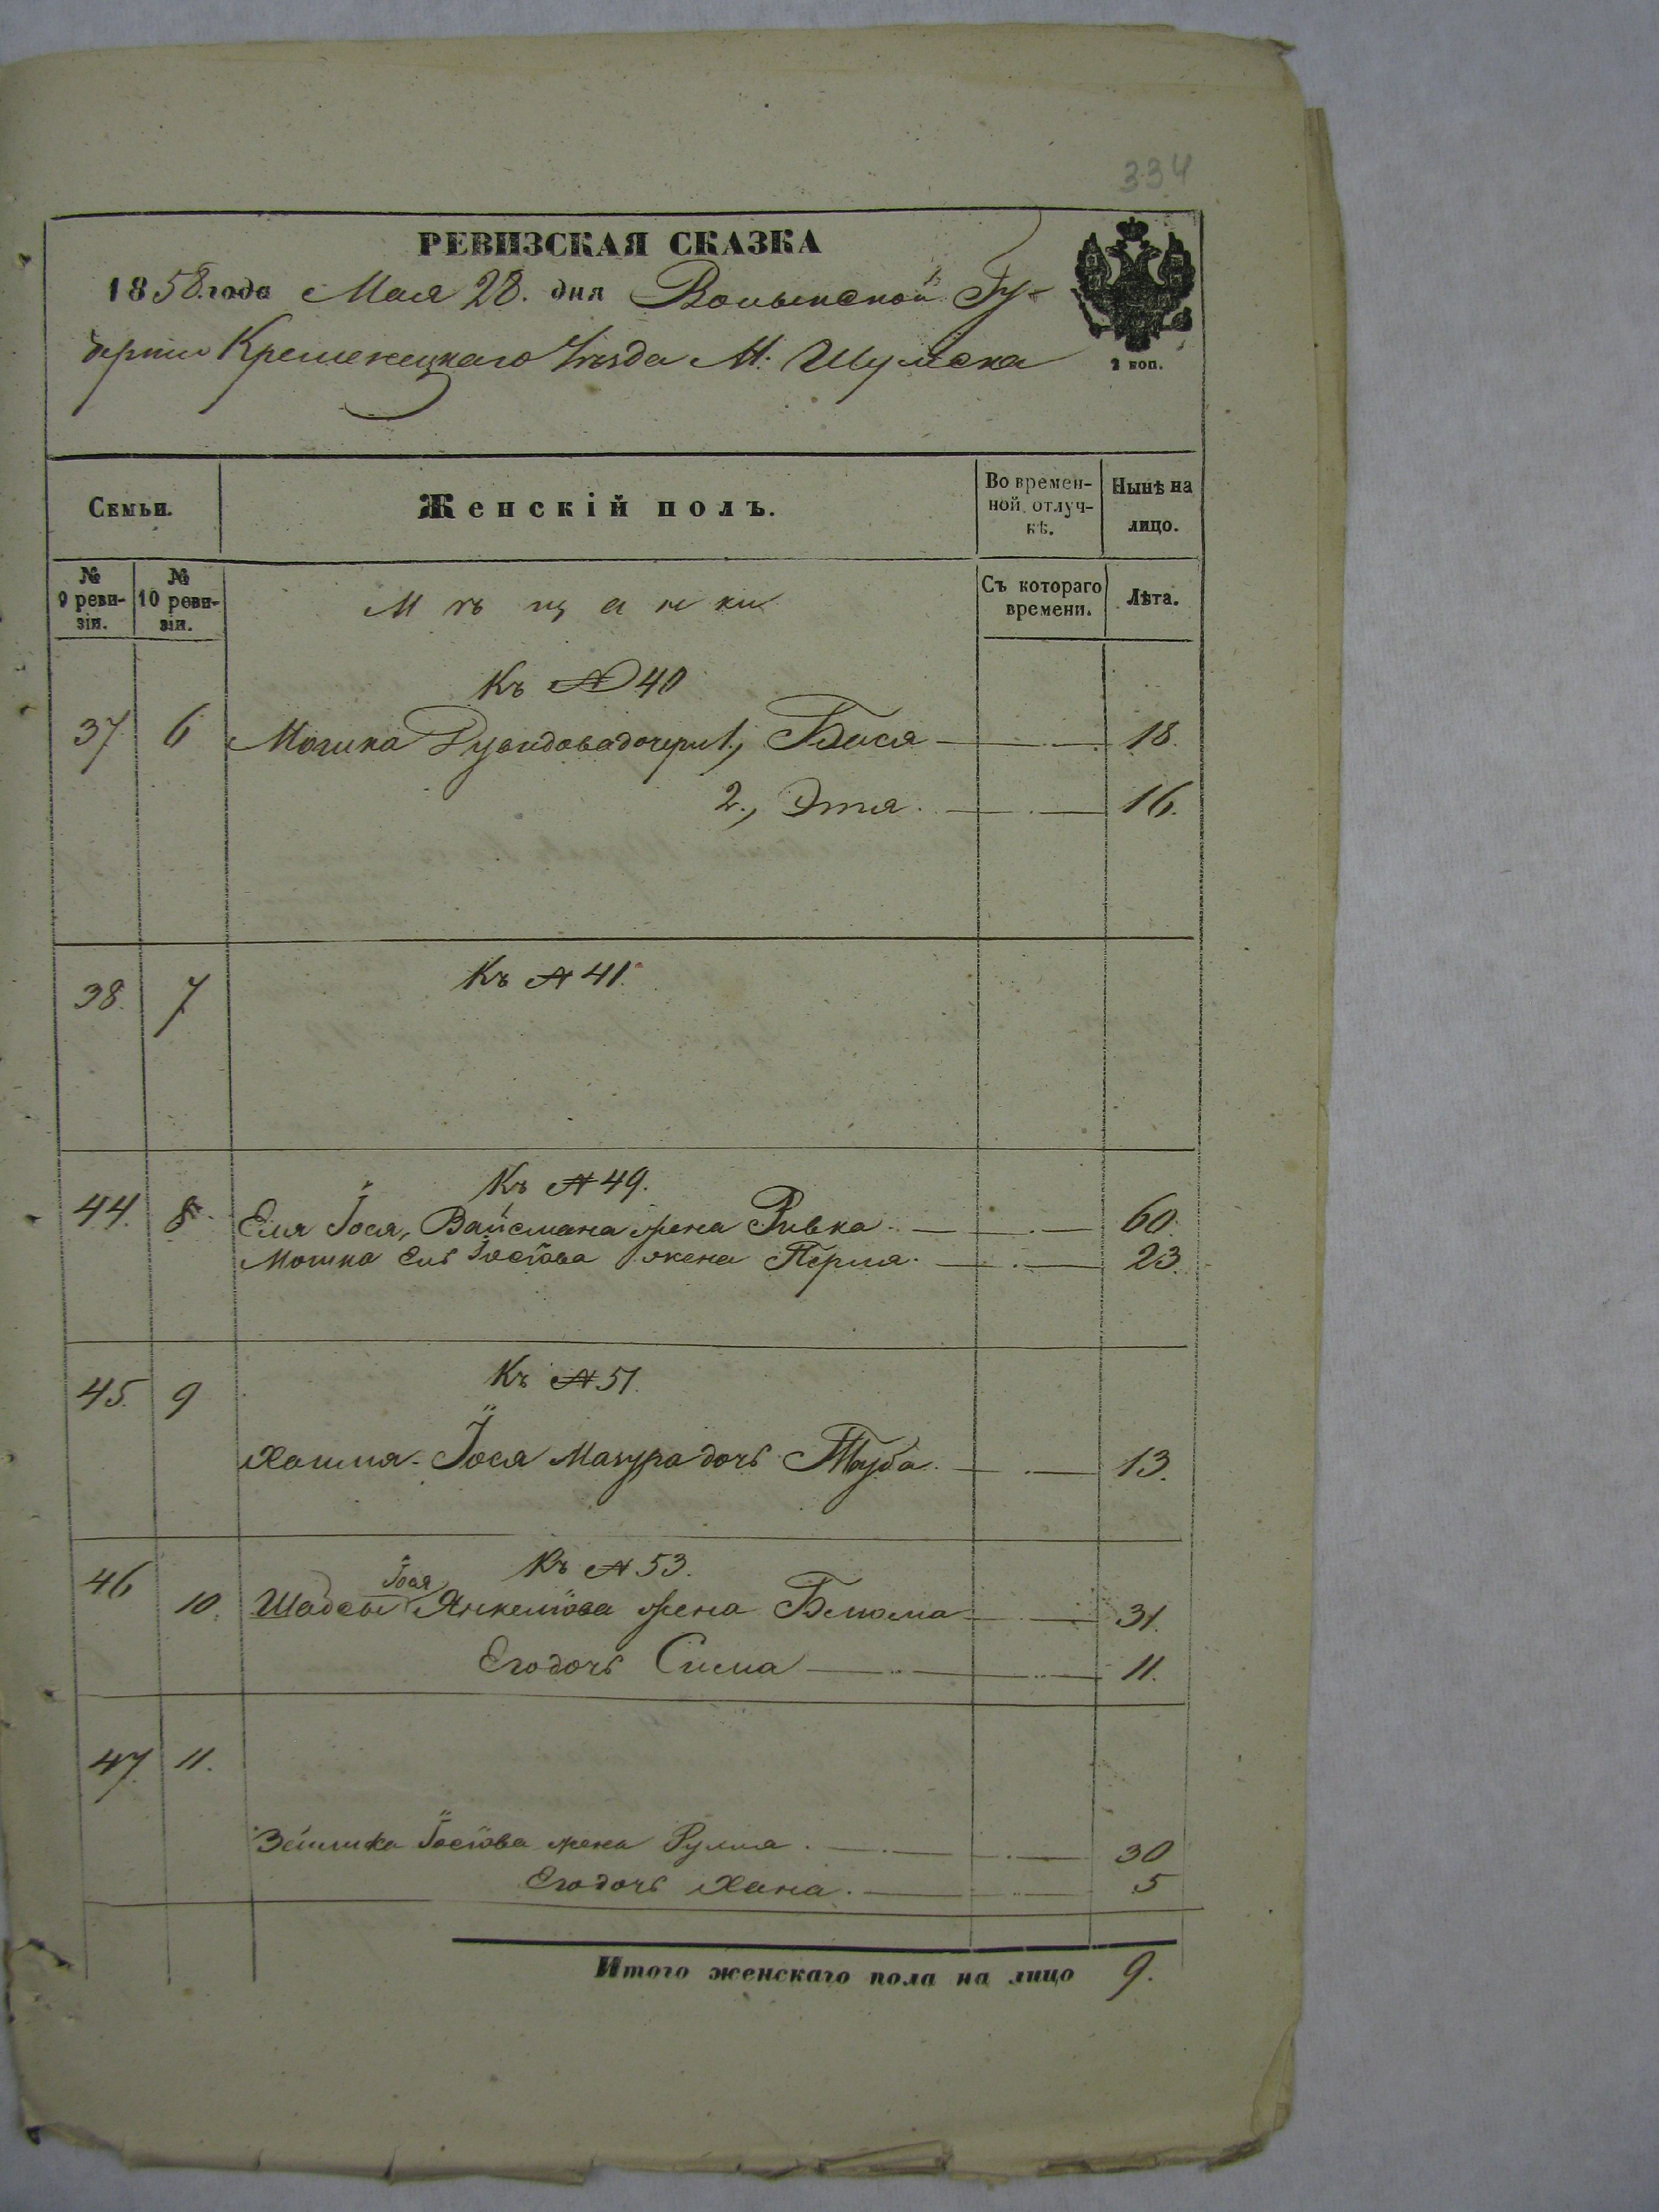 334
РЕВИЗСКАЯ СКАЗКА
1858 года Мая 28. дня Волынской Гу-
берніи Кременецкаго Уѣзда М. Шумска
2 коп.
Семьи. Женскій полъ. Во времен-ной отлуч-кѣ. Нынѣ на лицо.
№ 9 реви-зіи. № 10 реви-зіи. Мѣщанки Съ котораго времени. Лѣта.
Къ № 40
37 6 Мошка Рувидова дочери 1., Бася 18.
2., Этя. 16.
38. 7 Къ № 41.
Къ № 49.
44. 8 Еля Іося, Вайсмана жена Ривка. 60.
Мошка Ель Іосіова жена Перля. 23.
45. 9 Къ № 51.
Іося Мазура дочь Тауба. 13.
46 Къ № 53.
Іося
10. Янкеліова жена Блюма 31.
Его дочь Сима 11.
47. 11.
Зейлика Іосіова жена 30
Его дочь Хана. 5
Итого женскаго пола на лицо 9.